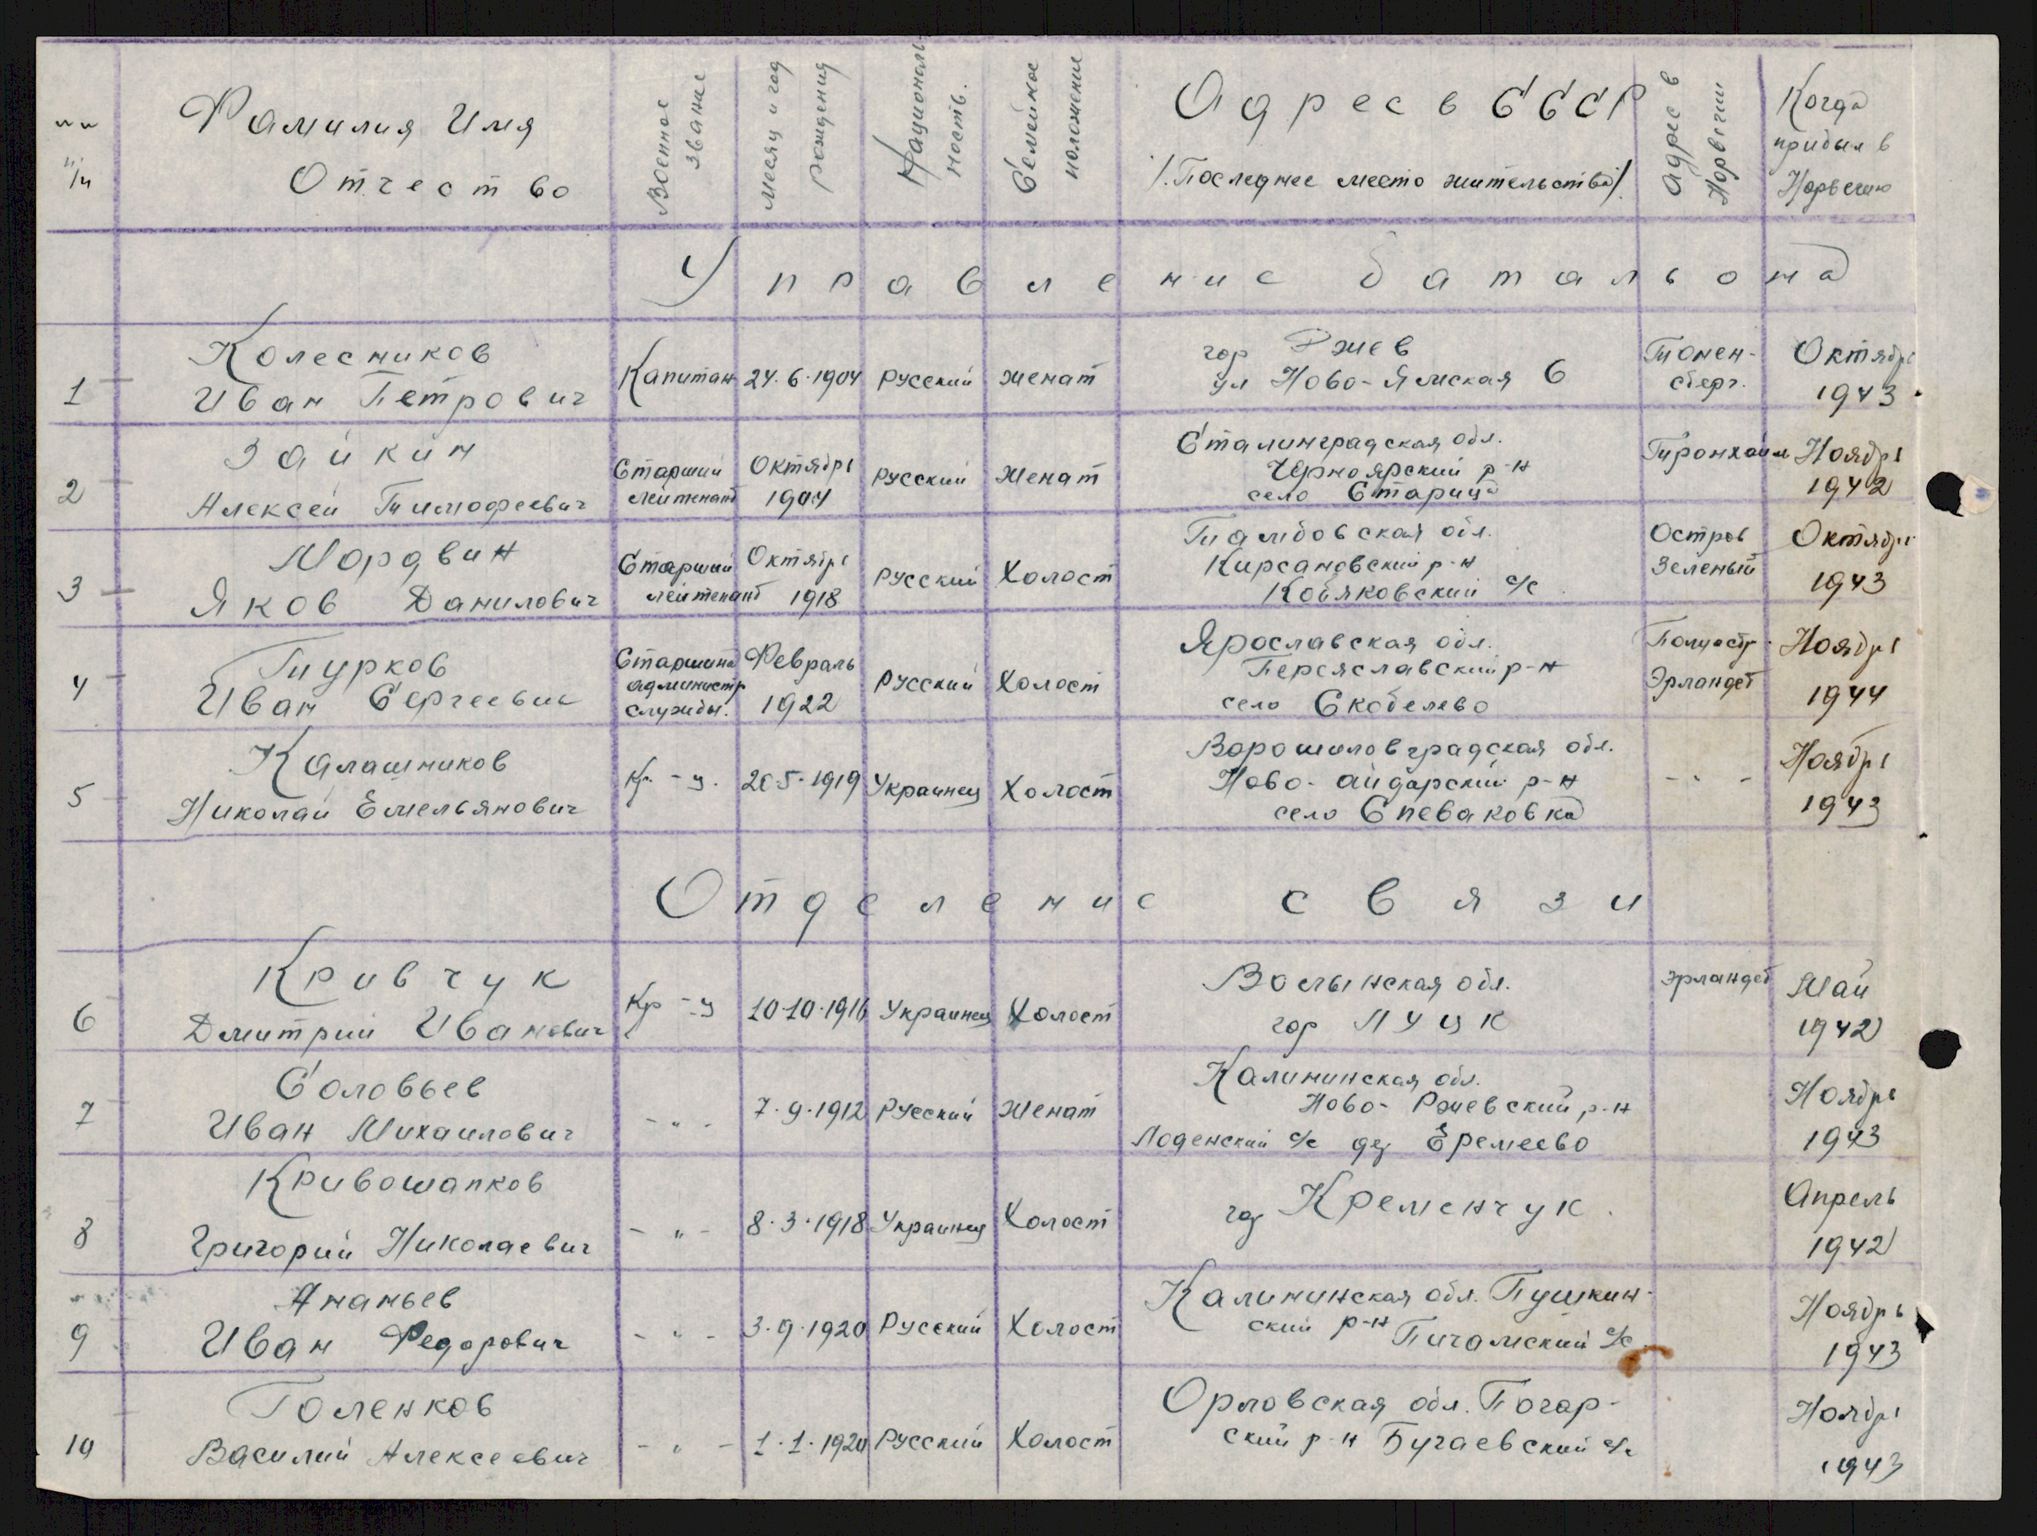 №№ п/п
Фамилия Имя
Отчество
Военное звание
Месяц и год рождения
Национальность.
Семейное положение
Адрес в СССР
/.Последнее место жительства/.
Адрес в Норвегии
Когда прибыл в Норвегию
Управление батальона
1
Колесников
Иван Петрович
Капитан
24.6.1904
Русский
женат
гор Ржев
ул Ново-Ямская 6
Тонен-
сберг.
Октябрь
1943
2
Зайкин
Алексей Тимофеевич
Старший
лейтенант
Октябрь
1904
Русский
Женат
Сталинградская обл.
Черноярский р-н
село Старица
Тронхейм
Ноябрь
1942
3
Мордвин
Яков Данилович
Старший
лейтенант
Октябрь
1918
Русский
Холост
Тамбовская обл.
Кирсановский р-н
Кобяковский с/с
Остров
Зеленый
Октябрь
1943
4
Турков
Иван Сергеевич
Старшина
администр
службы.
Февраль
1922
Русский
Холост
Ярославская обл.
Переяславский р-н
село Скобелево
Полуостр.
Эрландет
Ноябрь
1944
5
Калашников
Николай Емельянович
Кр-ц.
20.5.1919
Украинец
Холост
Ворошиловградская обл.
Ново-Айдарский р-н
село Спеваковка
-"-
Ноябрь
1943
Отделение связи
6
Кривчук
Дмитрий Иванович
Кр-ц
10.10.1916
Украинец
Холост
Волынская обл.
гор Луцк
Эрландет
Май
1942
7
Соловьев
Иван Михаилович
-"-
7.9.1912
Русский
Женат
Калининская обл.
Ново-Ржевский р-н
Лоденский с/с дер Еремеево
Ноябрь
1943
8
Кривошапков
Григорий Николаевич
-"-
8.3.1918
Украинец
Холост
гор Кременчук.
Апрель
1942
9
Ананьев
Иван Федорович
-"-
3.9.1920
Русский
Холост
Калининская обл. Пушкин-
ский р-н
с/с
Ноябрь
1943
10
Голенков
Василий Алексеевич
-"-
1.1.1920
Русский
Холост
Орловская обл. Погар-
ский р-н Бугаевский с/с
Ноябрь
1943